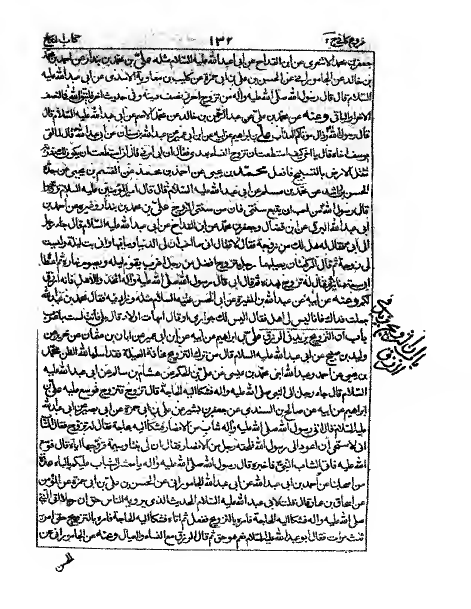 فروع كافى ج ۲ ۱۳۲ كتاب النكاح
جعفر بن محمد الاشعرى عن ابن القداح عن ابى عبدالله عليه السلام مثله على بن محمد بن بندار عن احمد بن محمد
بن خالد عن الجامورانى عن الحسن بن على بن ابى حمزة عن كليب بن معاوية الاسدى عن ابى عبدالله عليه
السلام قال قال رسول الله صلى الله عليه وآله من تزوج احرز نصف دينه وفى حديث اخر فليتق الله فى النصف
الاخر او الباقى وعنه عن محمد بن على عن عبد الرحمن بن خالد عن محمد الاصم عن ابى عبدالله عليه السلام قال
قال رسول الله رذال موتاكم العزاب على بن ابراهيم عن ابيه عن ابن ابى عمير عن عبدالله بن سنان عن ابى عبدالله قال لما لقى
يوسف اخاه قال يا اخى كيف استطعت ان تزوج النساء بعدى فقال ان ابى امرنى قال ان استطعت ان يكون لك ذرية
تثقل الارض بالتسبيح فافعل محمد بن يحيى عن احمد بن محمد عن القسم بن يحيى عن جده
الحسن بن راشد عن محمد بن مسلم عن ابى عبدالله عليه السلام قال قال امير المؤمنين عليه السلام تزوجوا
قال رسول الله من احب ان يتبع سنتى فان من سنتى التزويج على بن محمد بن بندار وغيره عن احمد بن
ابى عبدالله البرقى عن ابن فضال وجعفر بن محمد عن ابن القداح عن ابى عبدالله عليه السلام قال جاء رجل
الى ابى فقال له هل لك من زوجة فقال لا فقال ابى ما احب ان لى الدنيا وما فيها وانى بت ليلة وليست
لى زوجة ثم قال الركعتان يصليهما رجل متزوج افضل من رجل اعزب يقوم ليله ويصوم نهاره ثم اعطاه
ابى سبعة دنانير ثم قال له تزوج بهذه ثم قال ابى قال رسول الله صلى الله عليه وآله اتخذوا الاهل فانه ارزق
لكم وعنه عن ابيه عن عبدالله بن المغيرة عن ابى الحسن عليه السلام مثله وزاد فيه فقال محمد بن عبيدالله
جعلت فداك فانا ليس لى اهل فقال اليس لك جوارى او قال امهات الاولاد قال بلى قال فانت لست باعزب
باب ان التزويج يزيد فى الرزق على بن ابراهيم عن ابيه عن ابن ابى عمير عن ابان بن عثمان عن حريز عن
وليد بن صبيح عن ابى عبدالله عليه السلام قال من ترك التزويج مخافة العيلة فقد اساء بالله الظن محمد
بن يحيى عن احمد وعبدالله ابنى محمد بن عيسى عن على بن الحكم عن هشام بن سالم عن ابى عبدالله عليه
السلام قال جاء رجل الى النبى صلى الله عليه وآله فشكا اليه الحاجة فقال تزوج فتزوج فوسع عليه على بن
ابراهيم عن ابيه عن صالح بن السندى عن جعفر بن بشير عن على بن ابى حمزة عن ابى بصير عن ابى عبدالله
عليه السلام قال اتى رسول الله صلى الله عليه وآله شاب من الانصار فشكا اليه الحاجة فقال له تزوج فقال الشاب
انى لاستحيى ان اعود الى رسول الله فلحقه رجل من الانصار فقال ان لى بنتا وسيمة فزوجها اياه قال فوسع
الله عليه فاتى الشاب النبى فاخبره فقال رسول الله صلى الله عليه وآله يا معشر الشباب عليكم بالباه عدة
من اصحابنا عن احمد بن ابى عبدالله عن ابى عبدالله الجامورانى عن الحسن بن على بن ابى حمزة عن المؤمن
عن اسحاق بن عمار قال قلت لابى عبدالله عليه السلام الحديث الذى يرويه الناس حق ان رجلا اتى النبى
صلى الله عليه وآله فشكا اليه الحاجة فامره بالتزويج ففعل ثم اتاه فشكا اليه الحاجة فامره بالتزويج حتى امره
ثلث مرات فقال ابو عبدالله عليه السلام نعم هو حق ثم قال الرزق مع النساء والعيال وعنه عن الجامورانى عن
الحسن
باب ان التزويج يزيد فى الرزق